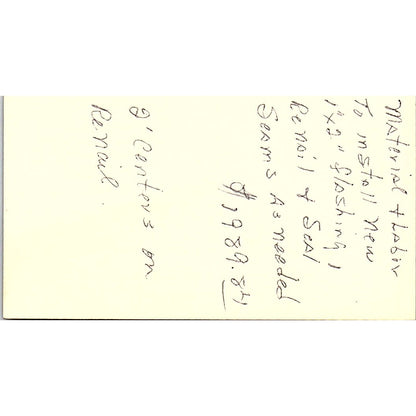 Material & Labor
To install New
1"x2" flashing,
Renail & Seal
Seams As needed
$1,989.84
2' Centers on
Renail.